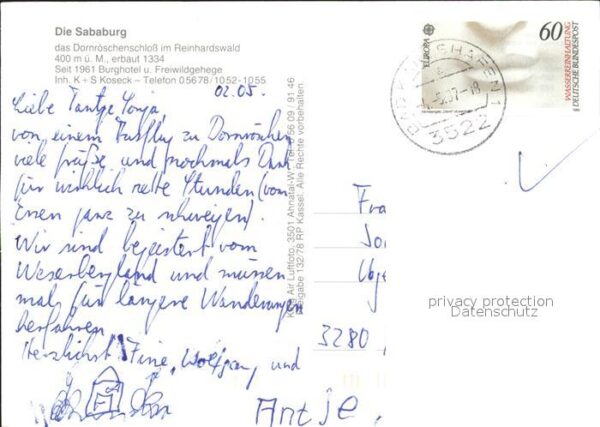 Die Sababurg
das Dornröschenschloß im Reinhardswald
400 m ü. M., erbaut 1334
Seit 1961 Burghotel u. Freiwildgehege
Inh. K + S Koseck – Telefon 05678 / 1052-1055
02.05.
Liebe Tantje Sonja,
von einem Ausflug zu Dornröschen
viele Grüße und nochmals Dank
für wirklich nette Stunden (vom
Essen ganz zu schweigen).
Wir sind begeistert vom
Weserbergland und müssen
mal für längere Wanderungen
herfahren
Herzlichst Fine, Wolfgang und
Antje,
Air Luftfoto, 3501 Ahnatal-W, 09 / 91 46
Freigabe 132/78 RP Kassel. Alle Rechte vorbehalten.
Fra
3280
EUROPA
60
WASSERREINHALTUNG
DEUTSCHE BUNDESPOST
BAD KARLSHAFEN 1
.5.87-18
3522
privacy protection
Datenschutz